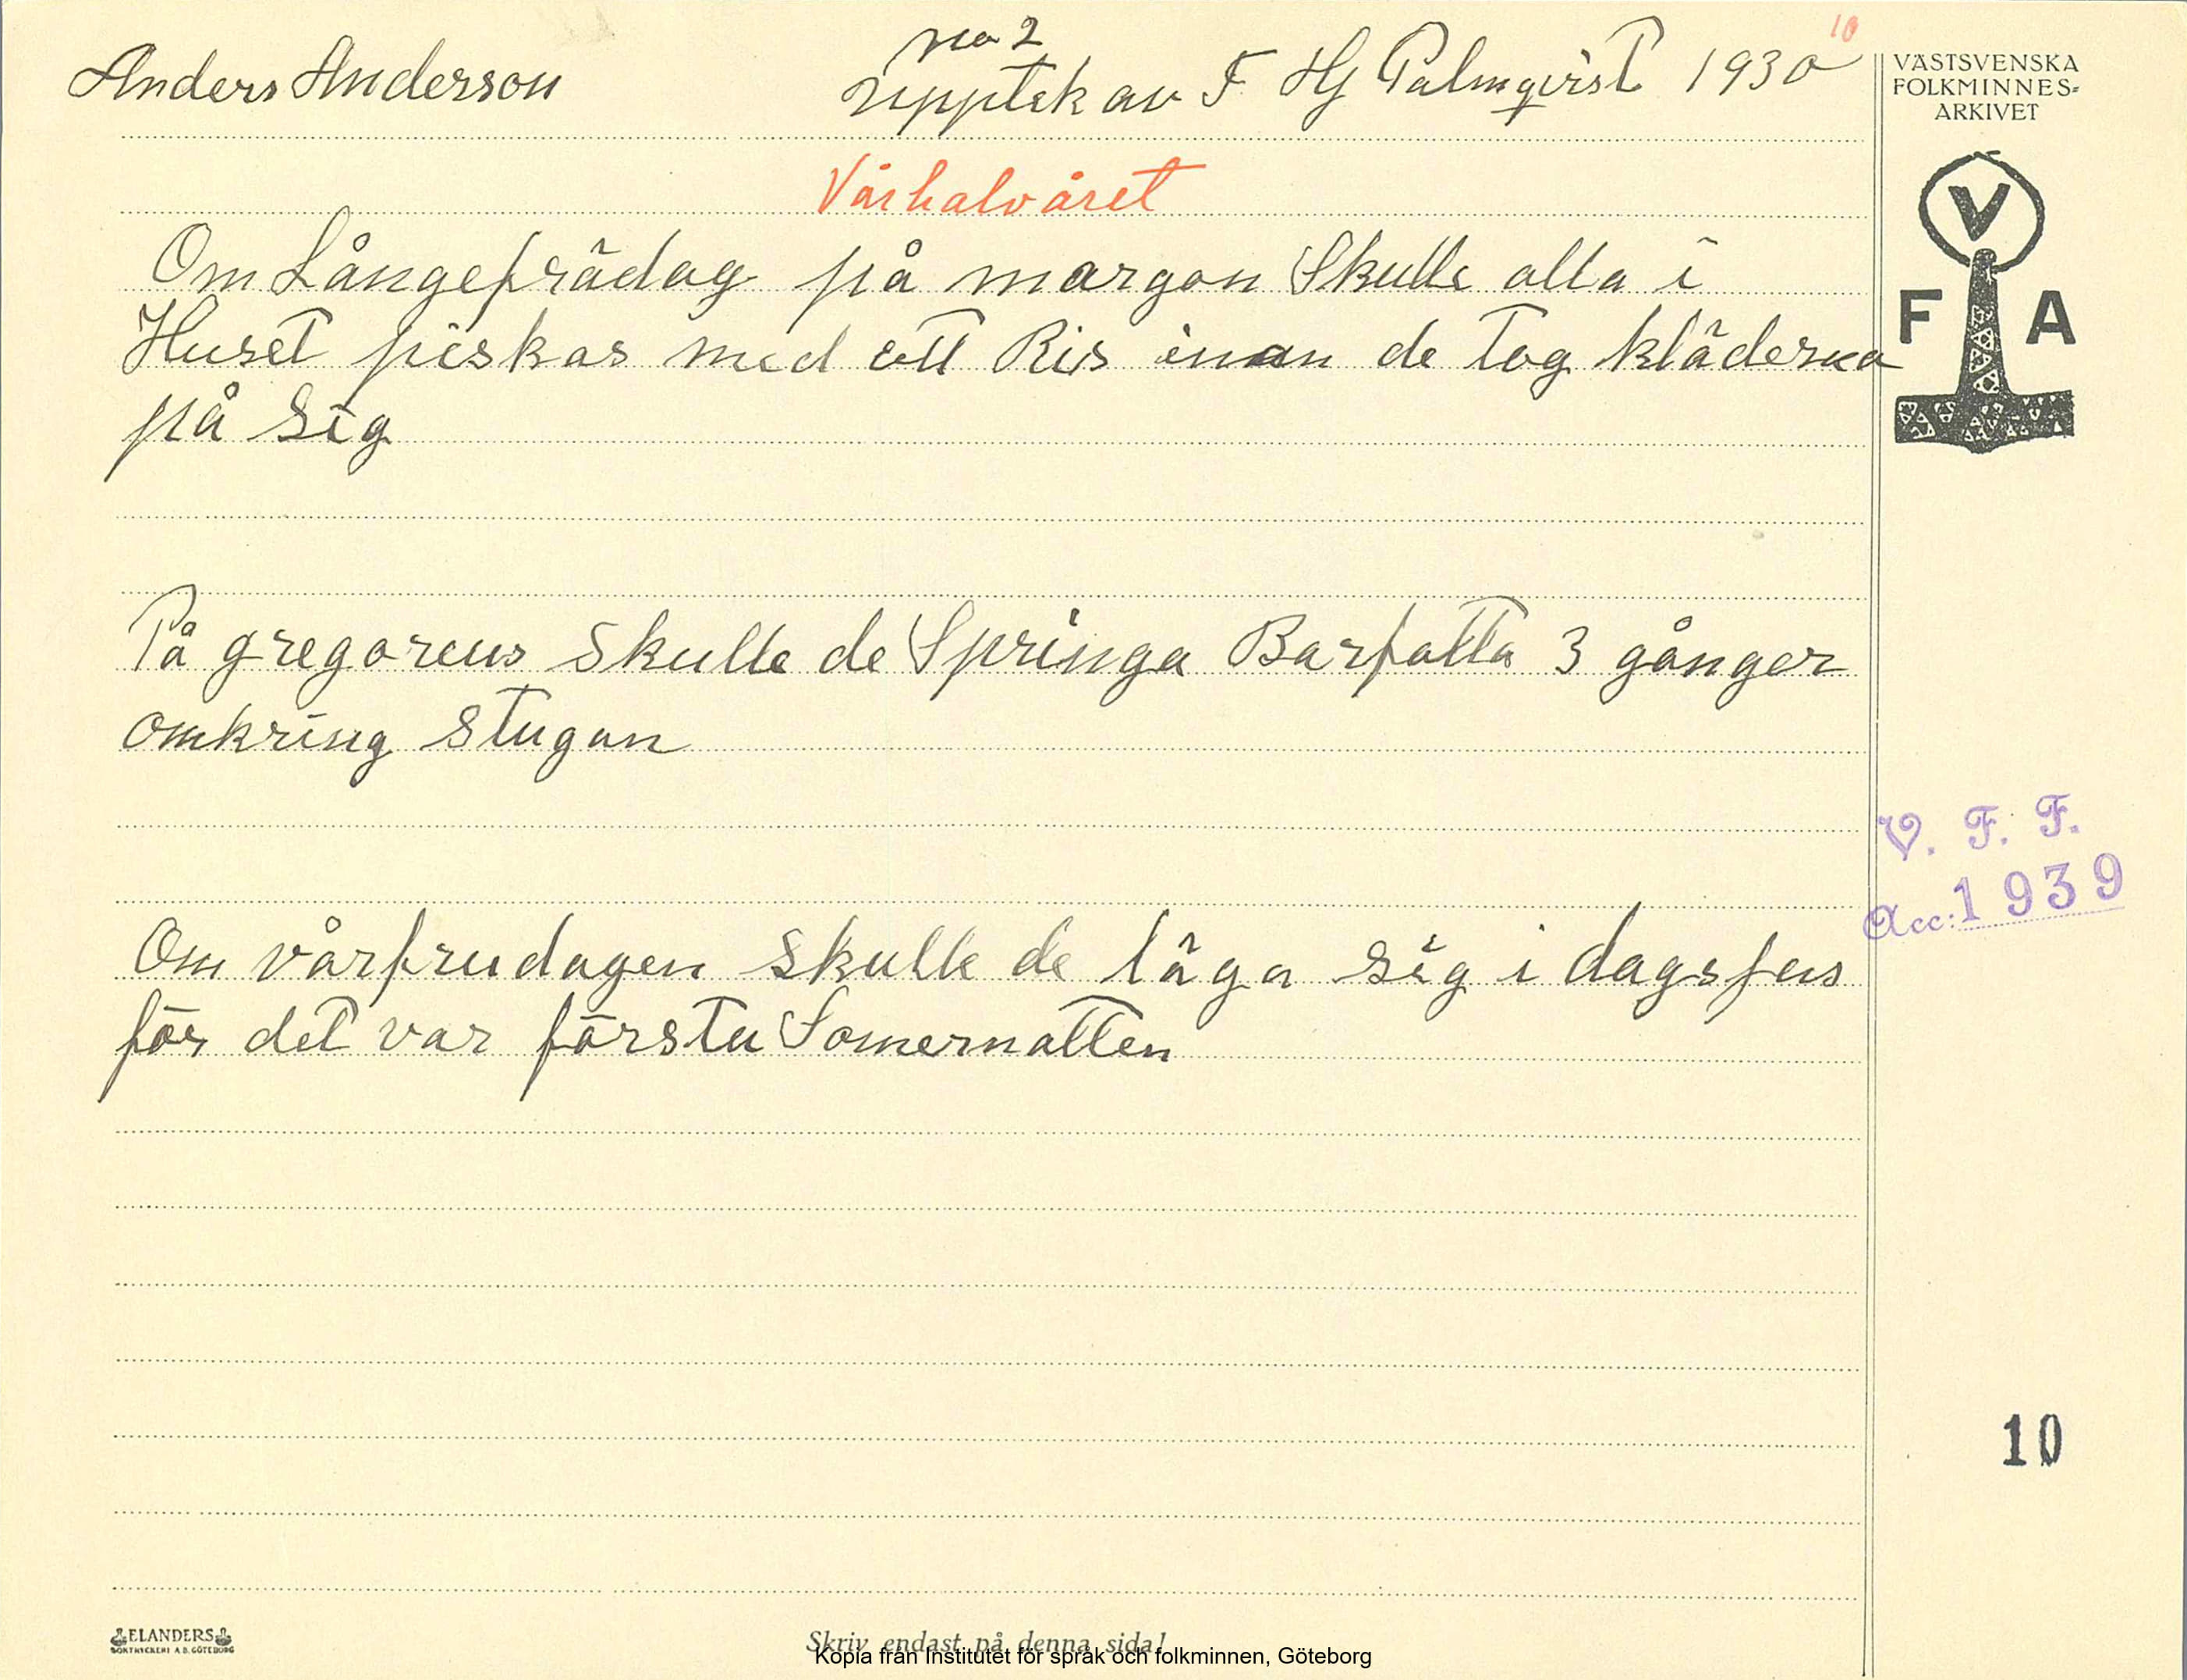 Anders Anderson
no 2
upptek av F Hj Palmqvist 1930
10
VÄSTSVENSKA
FOLKMINNES=
ARKIVET
V
F A
Vårhalvåret
Om Långefrädag på margon Skulle alla i
Huset piskas med ett Ris innan de tog kläderna
på Sig
På gregoreus Skulle de Springa Barfotta 3 gånger
omkring stugan
V. F. F.
Acc: 1939
Om vårfrudagen skulle de läga sig i dagsjus
för det var första Somernatten
10
ELANDERS
BOKTRYCKERI A.B. GÖTEBORG
Skriv endast på denna sida!
Kopia från Institutet för språk och folkminnen, Göteborg